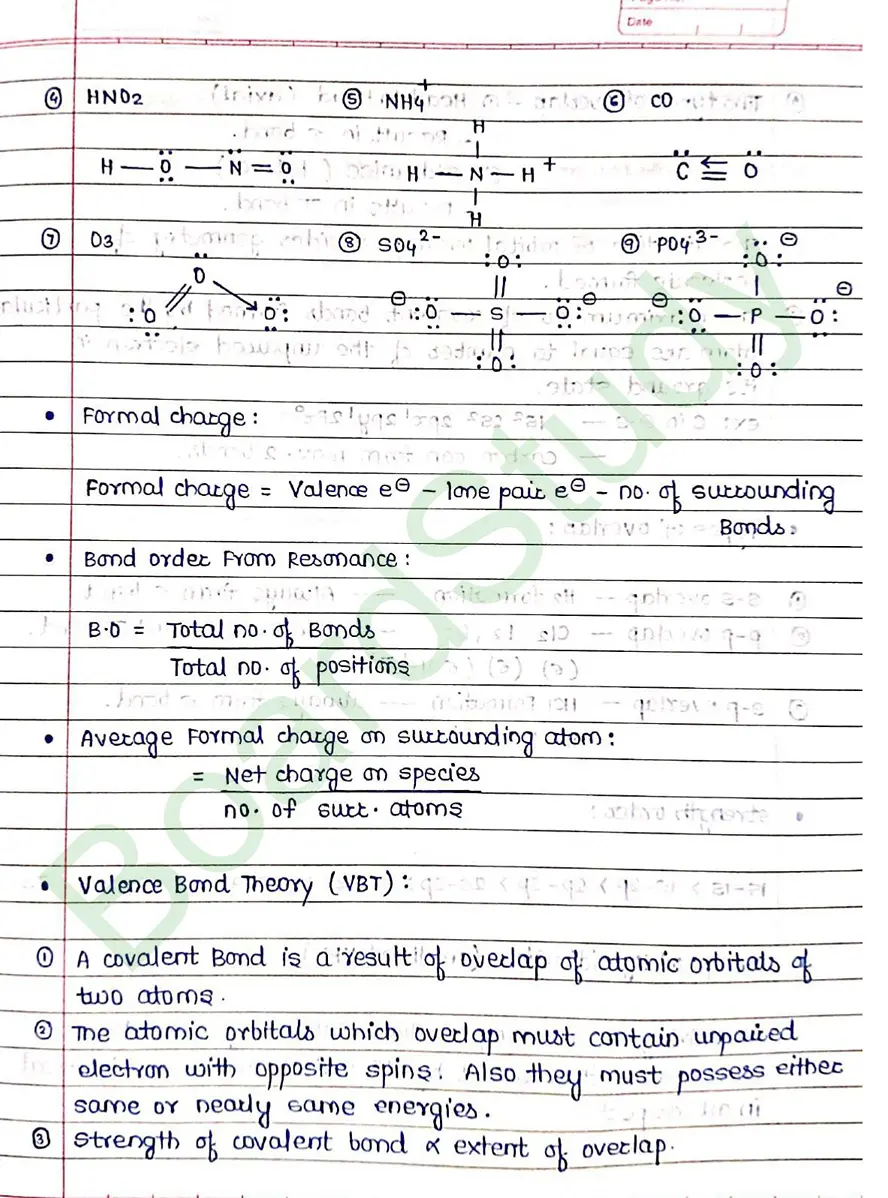 Date
④ HNO2 ⑤ NH4+ ⑥ CO
H
H — O — N = O H — N — H + C ≡ O
H
⑦ O3 ⑧ SO4 2- ⑨ PO4 3-
O :O: :O: ⊖
:O O: ⊖ :O — S — O: ⊖ ⊖ :O — P — O: ⊖
:O: :O:
• Formal charge:
Formal charge = Valence e⊖ - lone pair e⊖ - no. of surrounding
Bonds.
• Bond order From Resonance:
B.O = Total no. of Bonds
Total no. of positions
• Average Formal charge on surrounding atom:
= Net charge on species
no. of surr. atoms
• Valence Bond Theory (VBT):
① A covalent Bond is a result of overlap of atomic orbitals of
two atoms.
② The atomic orbitals which overlap must contain unpaired
electron with opposite spins. Also they must possess either
same or nearly same energies.
③ strength of covalent bond ∝ extent of overlap.
BoardStudy